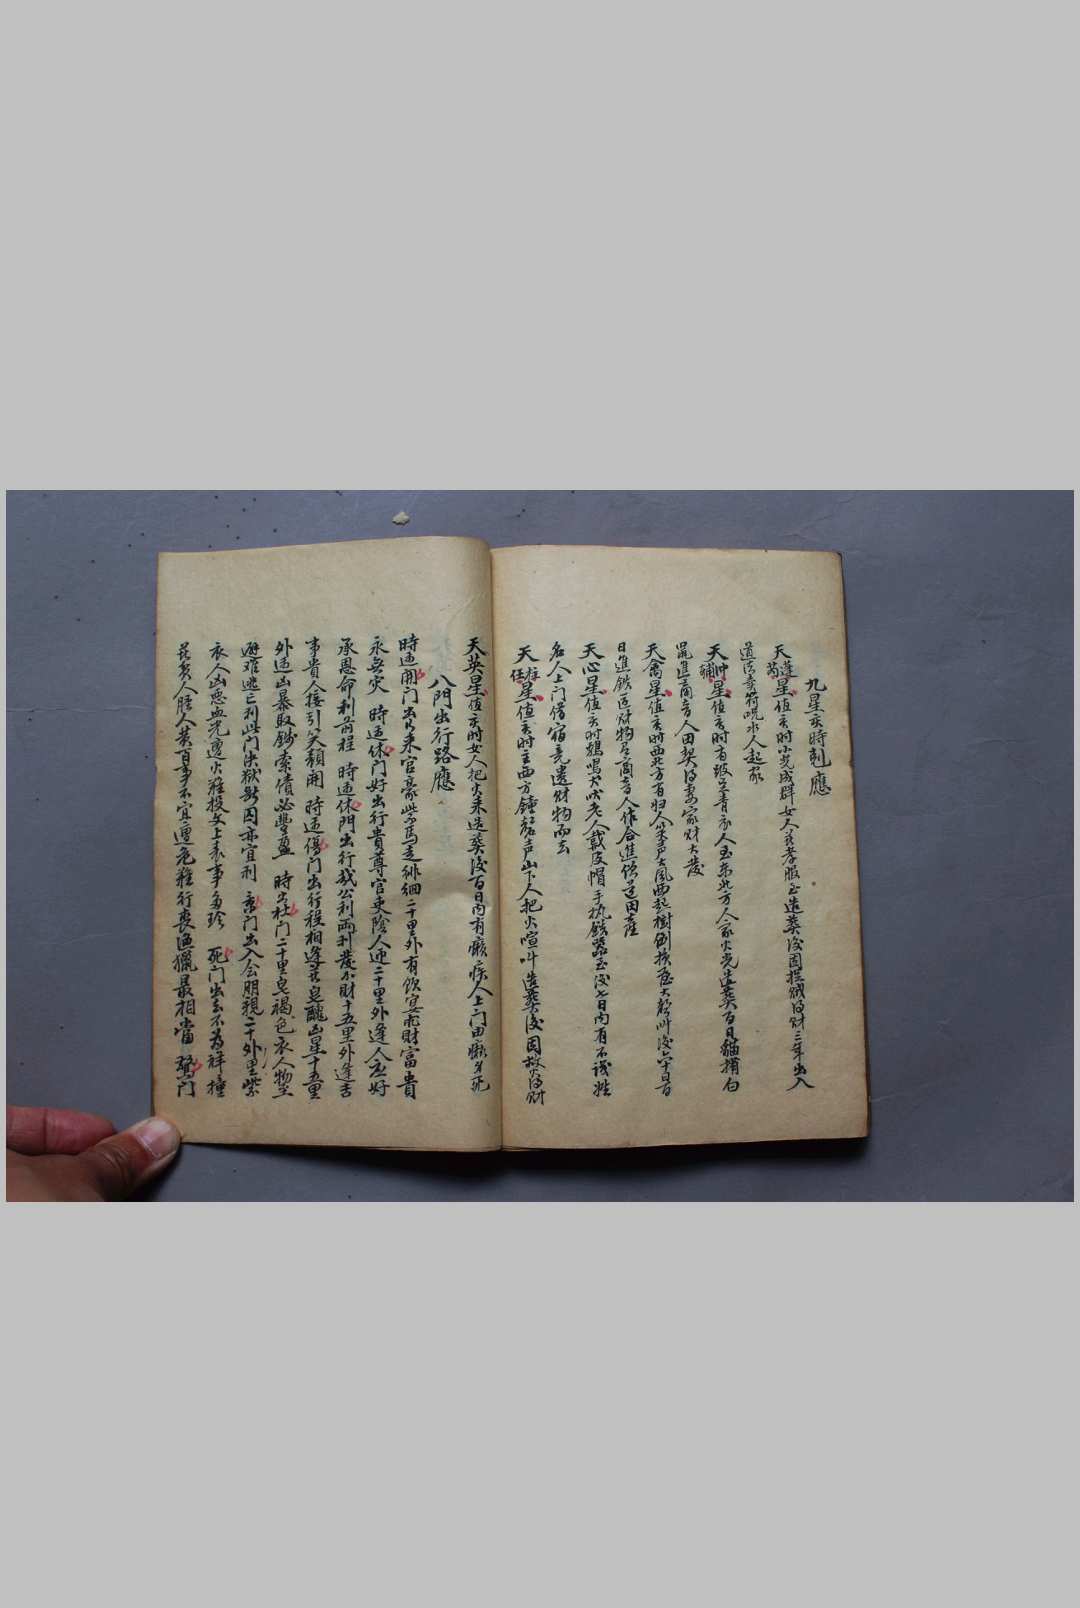 九星亥時剋應
天蓬芮星值亥时小児成群女人著孝服至造葬後因捉賊得财三年出入
道法卖符呪水人起家
天冲輔星值亥时有跛足青衣人至东北方人家火光造葬百日貓捕白
鼠進商音人田契得妻家财大發
天禽星值亥时西北方有妇人笑声大風西起樹倒折屋大声叫後六十日
日進鉄匠财物及商音人作合進僧道田產
天心星值亥时鷄鳴犬吠老人戴皮帽手执鉄器至後七日內有不识姓
名人上门借宿竟遺财物而去
天柱任星值亥时主西方鐘鼓声山下人把火喧叫造葬後因救火得财
天英星值亥时女人把火来造葬後百日內有癞疾人上门田癞身死
八門出行路應
時逢開门出以来官豪紫马走徘徊二十里外有飲宴求財富貴
永无灾 時逢休门好出行貴尊官吏陰人迎二十里外逢人应好
承恩命利前程 時逢休門出行哉公利兩利发小財十五里外逢吉
事貴人接引笑顏開 時逢傷门出行程相逢荒皂醜凶星十五里
外逢凶暴取錢索債必豐盈 時出杜门二十里皂褐色衣人物至
避难逃亡利此门决狱断囚亦宜利 景门出入会朋親二十外里紫
衣人凶恶血光遭火难投文上表事多珍 死门出去不为祥撞
人百事不宜遭危难行丧漁獵最相當 驚门